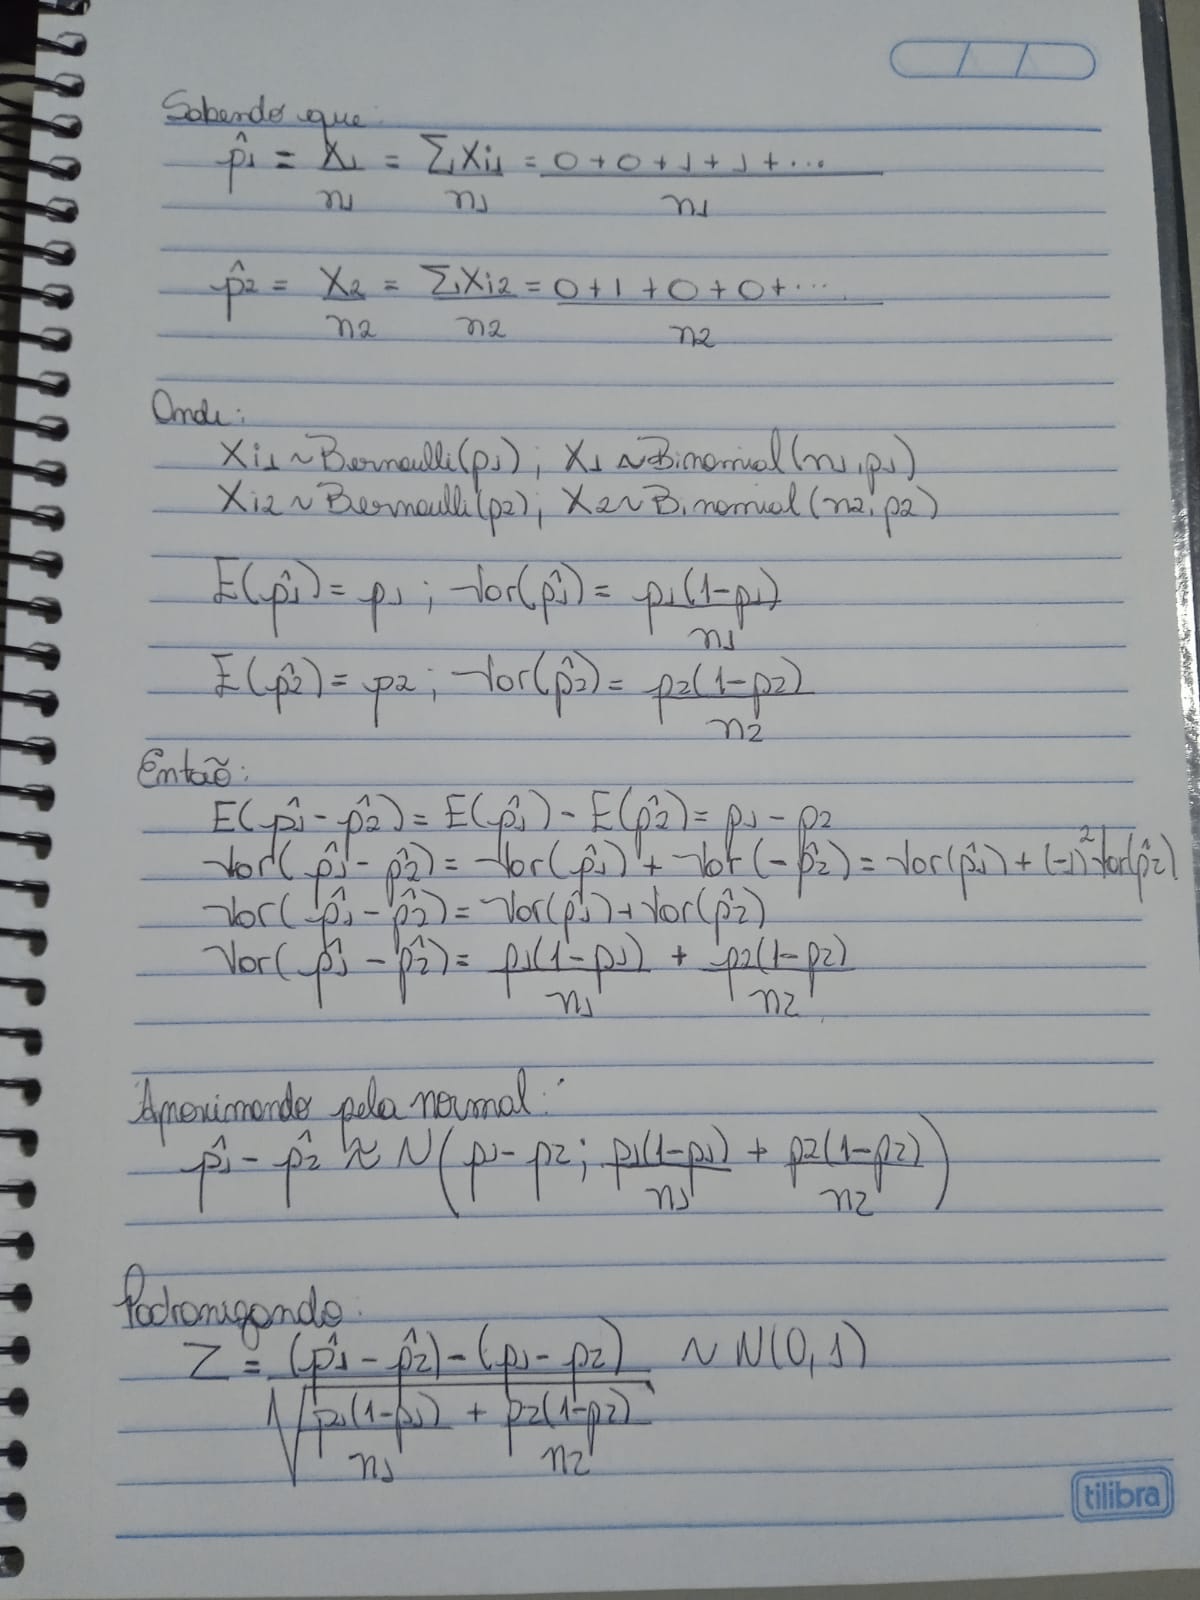 Sabendo que
p̂1 = X1/n1 = ΣXi1/n1 = 0+0+1+1+.../n1
p̂2 = X2/n2 = ΣXi2/n2 = 0+1+0+0+.../n2
Onde:
Xi1 ~ Bernoulli(p1); X1 ~ Binomial(n1, p1)
Xi2 ~ Bernoulli(p2); X2 ~ Binomial(n2, p2)
E(p̂1) = p1; Var(p̂1) = p1(1-p1)/n1
E(p̂2) = p2; Var(p̂2) = p2(1-p2)/n2
Então:
E(p̂1 - p̂2) = E(p̂1) - E(p̂2) = p1 - p2
Var(p̂1 - p̂2) = Var(p̂1) + Var(-p̂2) = Var(p̂1) + (-1)²Var(p̂2)
Var(p̂1 - p̂2) = Var(p̂1) + Var(p̂2)
Var(p̂1 - p̂2) = p1(1-p1)/n1 + p2(1-p2)/n2
Aproximando pela normal:
p̂1 - p̂2 ≈ N(p1 - p2; p1(1-p1)/n1 + p2(1-p2)/n2)
Padronizando:
Z = (p̂1 - p̂2) - (p1 - p2)/√(p1(1-p1)/n1 + p2(1-p2)/n2) ~ N(0,1)
tilibra